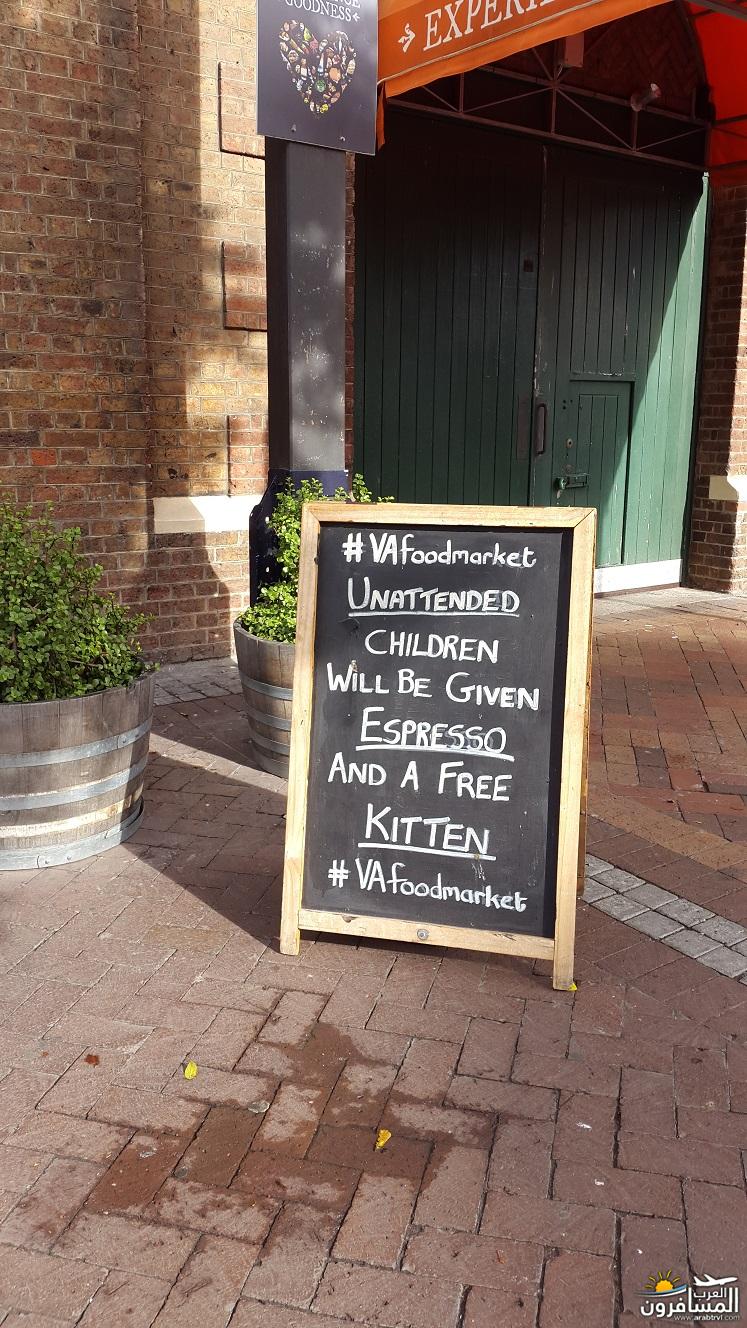 GOODNESS
EXPERI
#VAfoodmarket
UNATTENDED
CHILDREN
WILL BE GIVEN
ESPRESSO
AND A FREE
KITTEN
#VAfoodmarket
العرب
المسافرون
www.arabtrvl.com